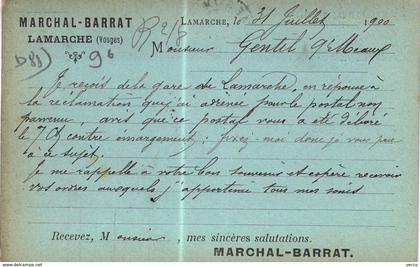 MARCHAL-BARRAT
LAMARCHE (Vosges)
LAMARCHE, le 31 Juillet 1900
R 2/8
96
Monsieur Gentil à Meaux
Je reçois de la gare de Lamarche, en réponse à
la réclamation que j'ai adressée pour le postal non
parvenu, avis que ce postal vous a été délivré
le 7 contre émargement; fixez moi donc je vous prie
à ce sujet.
Je me rappelle à votre bon souvenir et espère recevoir
vos ordres auxquels j'apporterai tous mes soins
Recevez, Monsieur, mes sincères salutations.
MARCHAL-BARRAT.